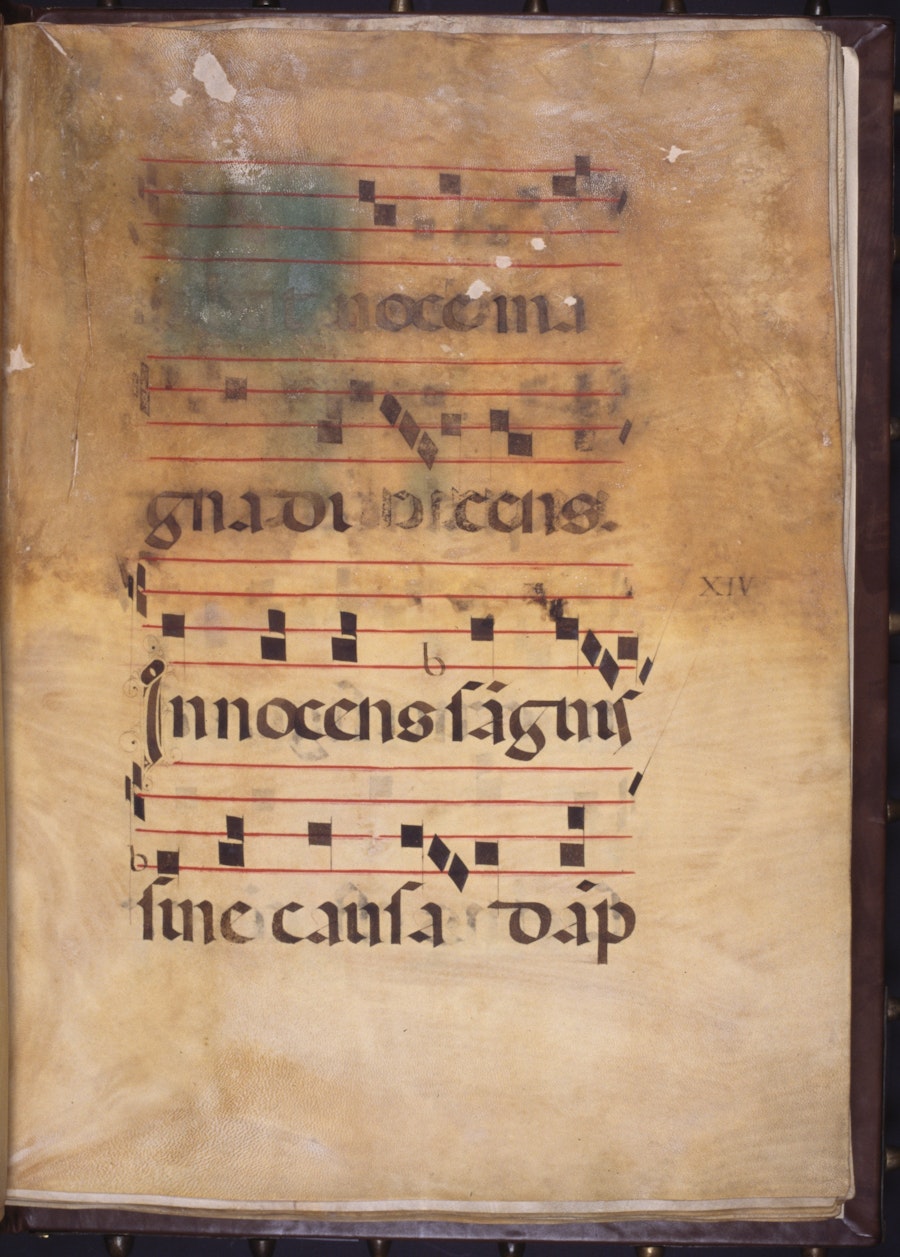 nocē ma
gna di dicens.
XIV
Innocens sāguis
b
sine causa dāp